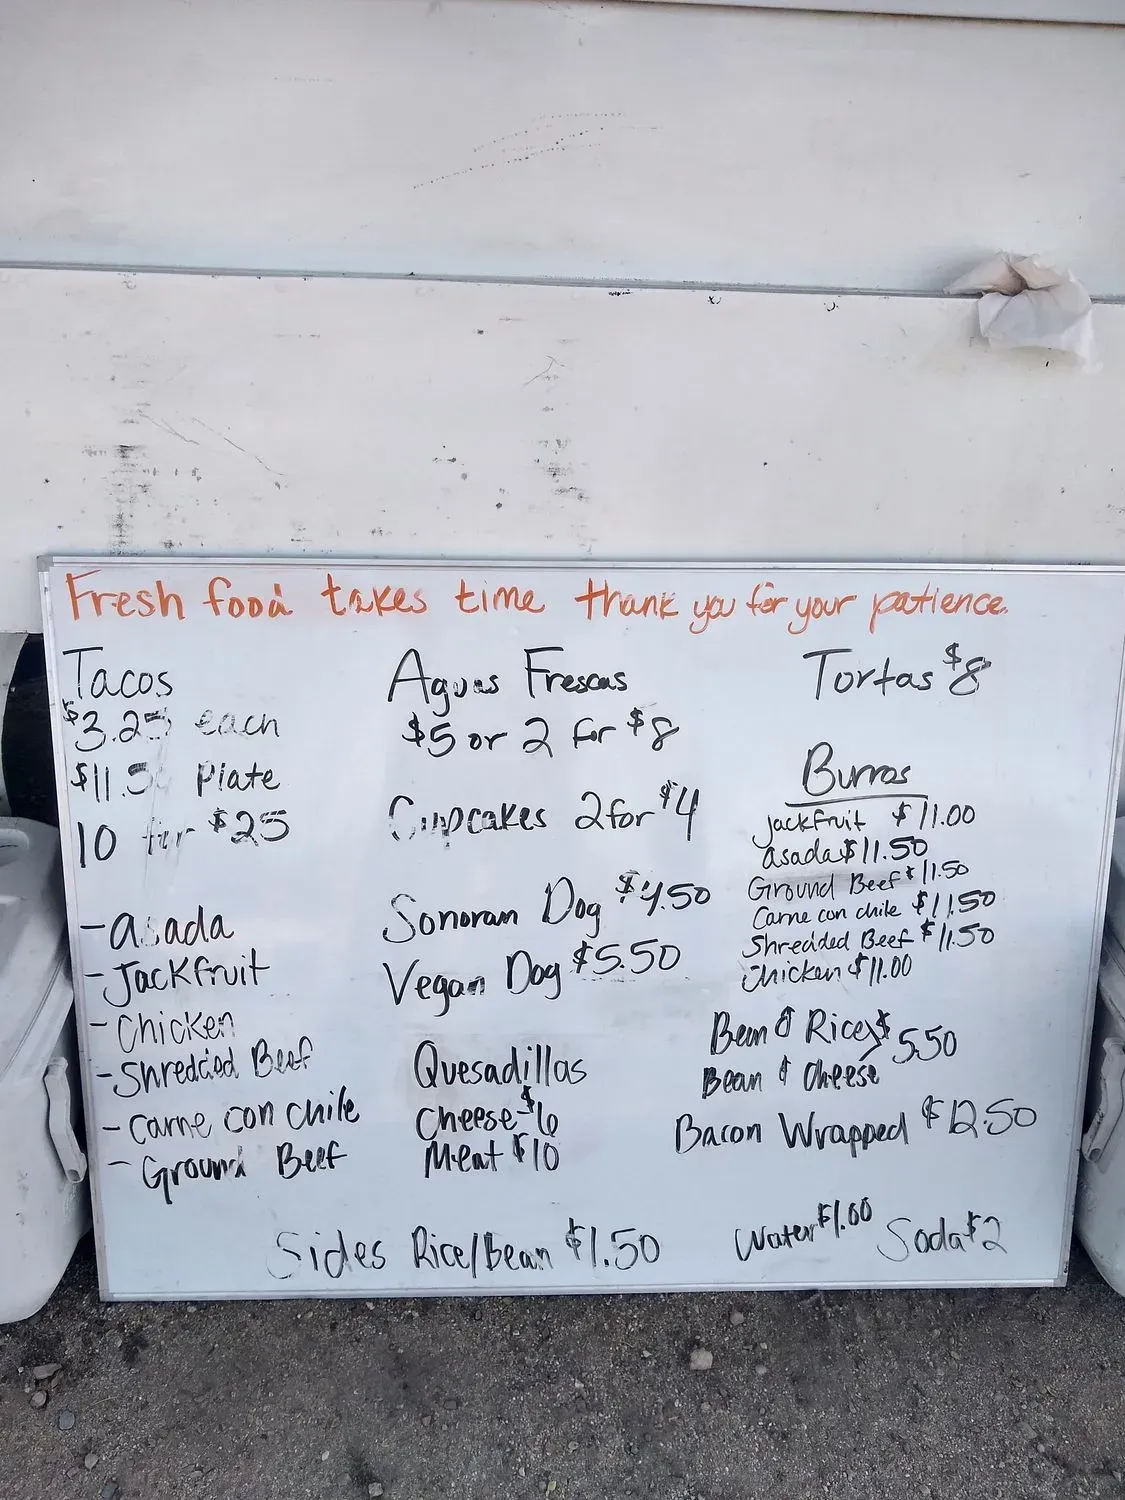 Fresh food takes time thank you for your patience.
Tacos
$3.25 each
$11.50 Plate
10 for $25
- asada
- Jackfruit
- Chicken
- Shredded Beef
- Carne con chile
- Ground Beef
Aguas Frescas
$5 or 2 for $8
Cupcakes 2 for $4
Sonoran Dog $4.50
Vegan Dog $5.50
Quesadillas
Cheese $6
Meat $10
Tortas $8
Burros
Jackfruit $11.00
asada $11.50
Ground Beef $11.50
Carne con chile $11.50
Shredded Beef $11.50
Chicken $11.00
Bean & Rice $5.50
Bean & Cheese
Bacon Wrapped $12.50
Sides Rice/Bean $1.50
Water $1.00 Soda $2